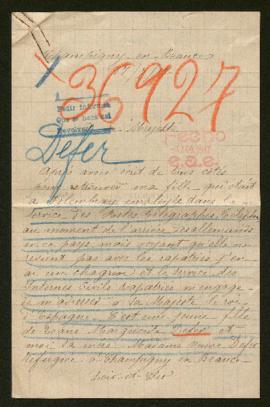 Champigny en Beauce
36927
Pedir informes
Que se hará así
Devolver
Majesté
Defer
Après avoir écrit de tous côtés
pour retrouver ma fille qui était
à employée dans le
Service des Postes Télégraphes Téléphones
au moment de l'arrivée des allemands
en ce pays mais voyant qu'elle ne
revient pas avec les rapatriés j'en
ai un chagrin et le Service des
Internés Civils rapatriés m'engage
en m'adresser à Sa Majesté le roi
d'Espagne. C'est une jeune fille
de ans Marguerite Defer et
moi sa mère Madame Defer
réfugiée à Champigny en Beauce
Loir-et-Cher